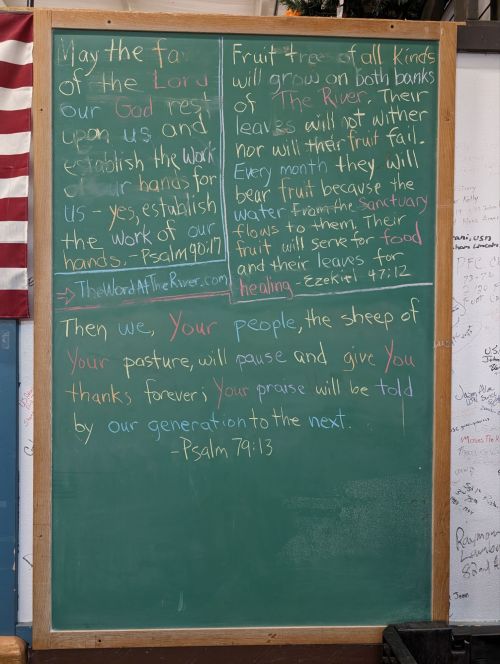 May the fa
of the Lord
our God rest
upon us and
establish the work
of our hands for
us - yes, establish
the work of our
hands. -Psalm 90:17
TheWordAtTheRiver.com
Fruit trees of all kinds
will grow on both banks
of The River. Their
leaves will not wither
nor will their fruit fail.
Every month they will
bear fruit because the
water from the Sanctuary
flows to them. Their
fruit will serve for food
and their leaves for
healing - Ezekiel 47:12
Then we, Your people, the sheep of
Your pasture, will pause and give You
thanks forever; Your praise will be told
by our generation to the next.
-Psalm 79:13